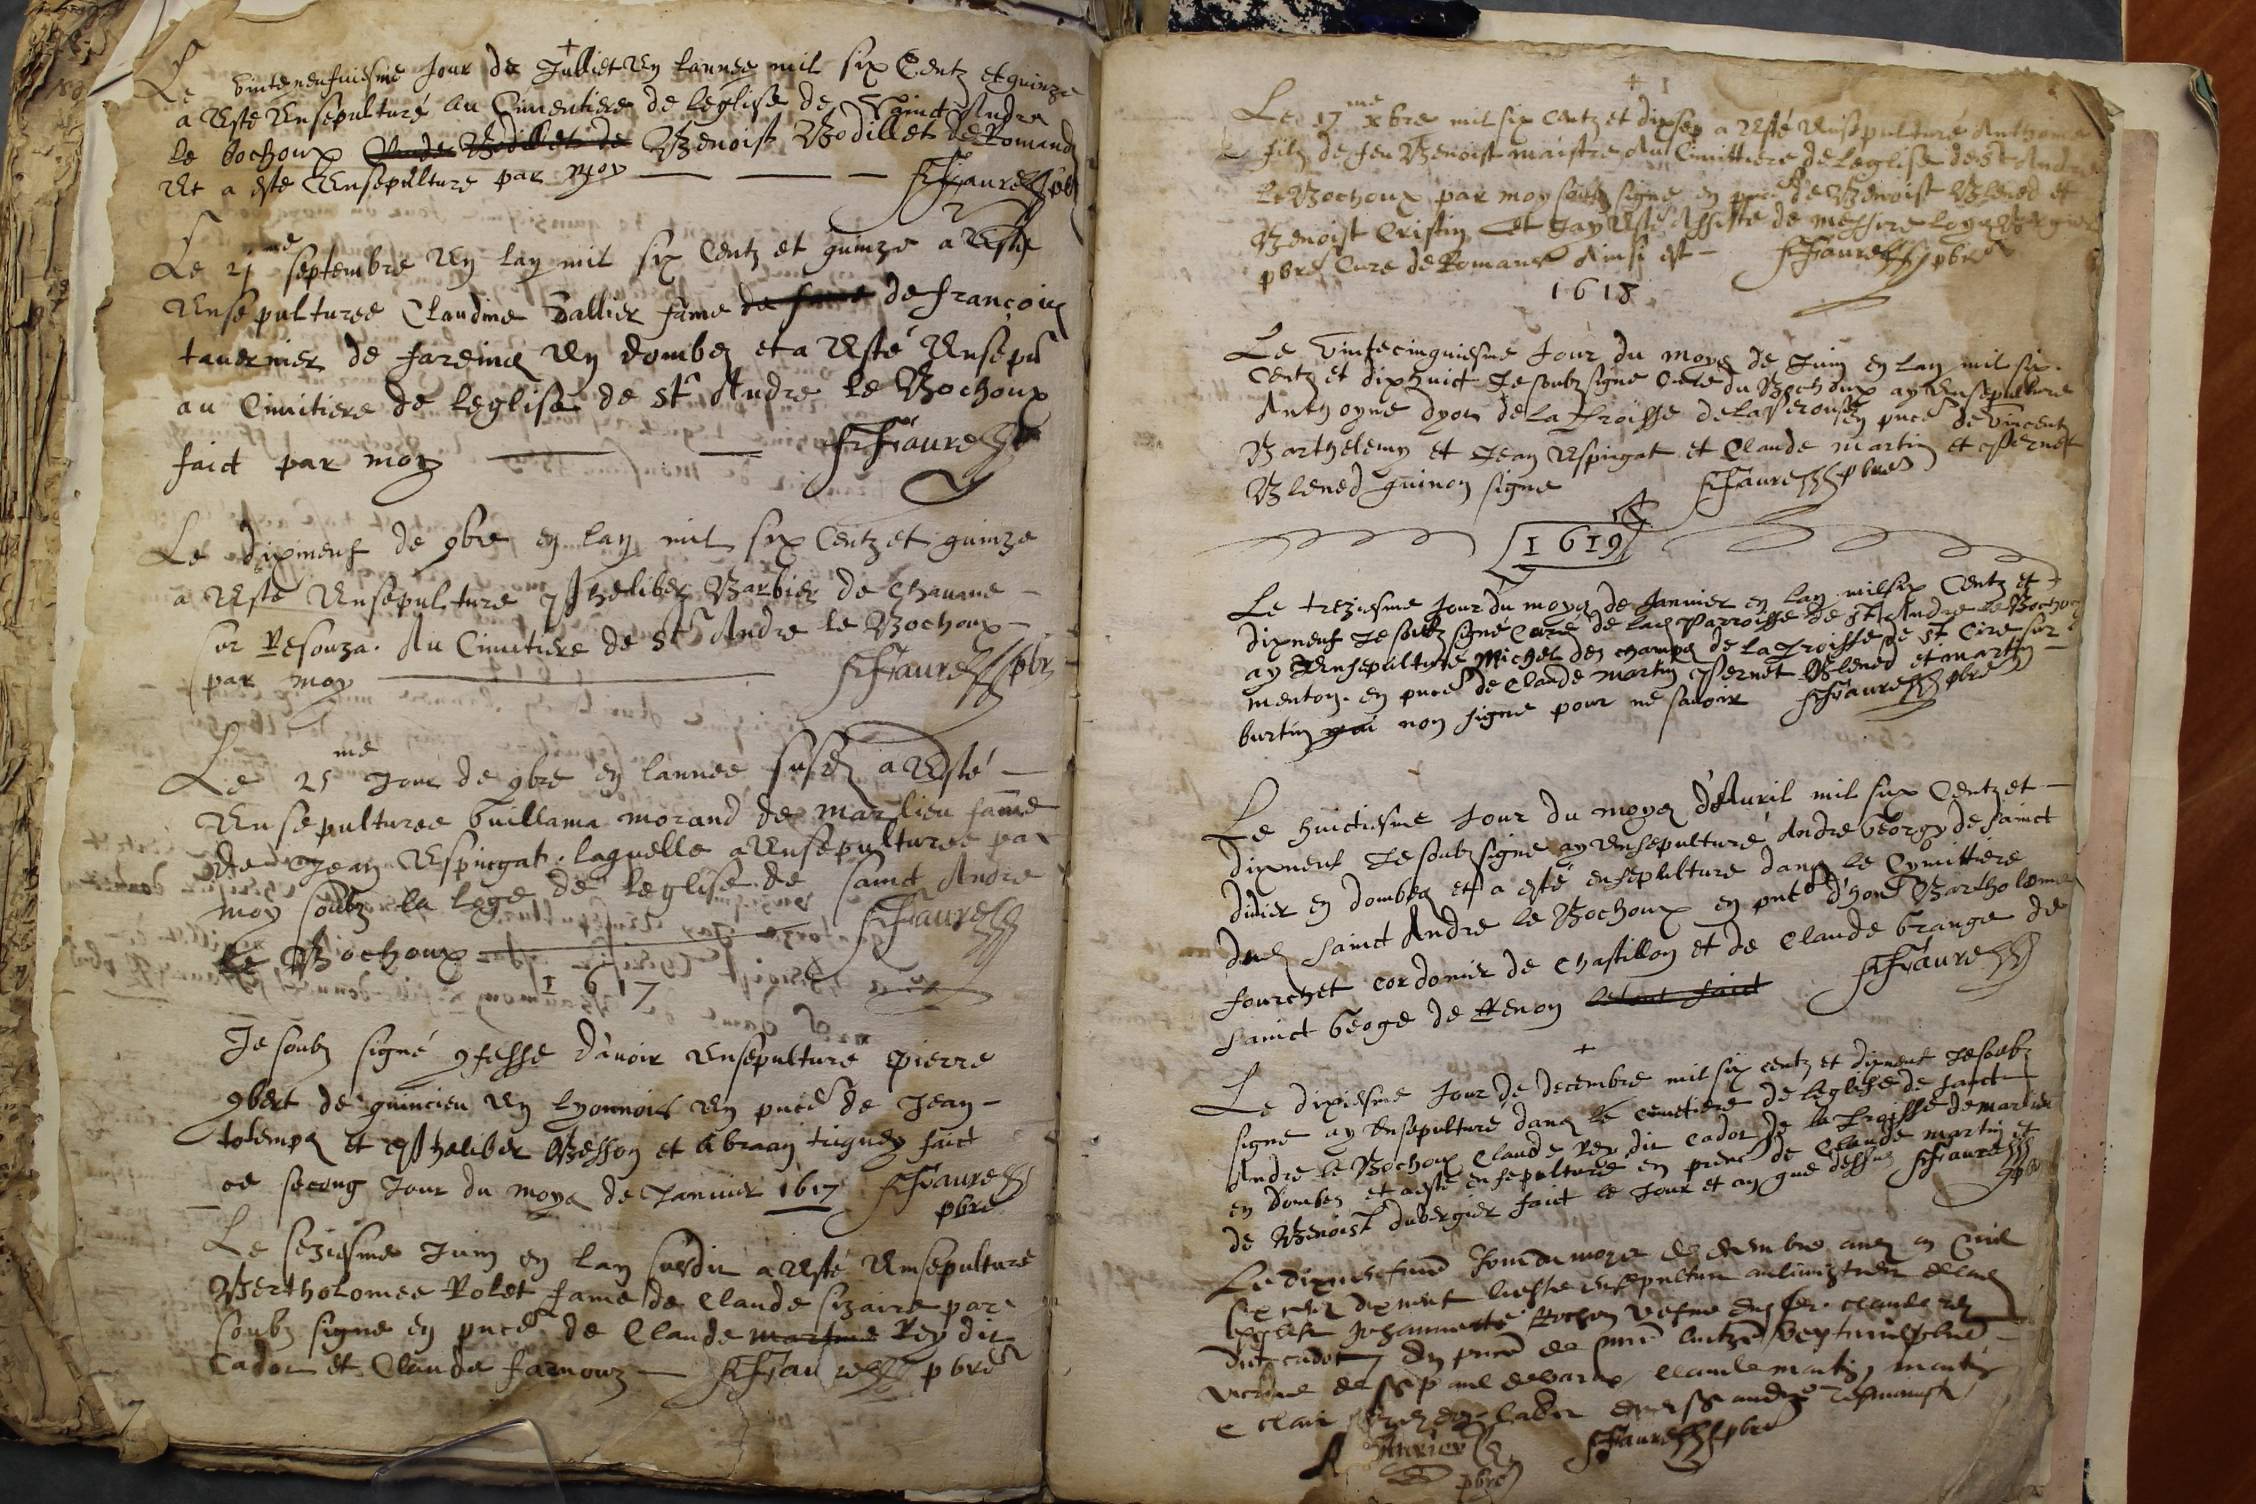 Le vinteneufviesme Jour de Julliet En lannee mil six Centz et quinze
a Este Ensepulturé au Cimentiere de leglise de Sainct Andre
le bochoux Benoist Bodillet de Romans
Et a este Ensepulture par Moy FFaure pbr
Le 21me septembre En lan mil six Centz et quinze a Este
Ensepulturee Claudine Vallier fame de françois
tavernier de fareins En dombes et a Esté Ensepu
au Cimitiere de leglise de St Andre le Bochoux
faict par moy FFaure
Le dixneuf de 9bre en lan mil six Centz et quinze
a Este Ensepulture Philibez Barbier de Chavane
sur Resouza. Au Cimitiere de St Andre le Bochoux
par moy FFaure pbr
Le 25me Jour de 9bre en lannee susd a Esté
Ensepulturee Guillama morand de marlieu fame
de Jean Espingat. laquelle a Ensepulturee par
moy soubz la loge de leglise de sainct Andre
le Bochoux FFaure
1617
Je soubz signé 9fesse d'avoir Ensepulture pierre
9bert de quincieu En lyonnois En pnce de Jean
totemps et Philiber Besson et Abraan tignez faict
ce secong Jour du moys de Janvier 1617 FFaure
pbre
Le seziesme Juin en lan susdit a Esté Ensepulture
Bertholomee Rolet fame de Claude sizaire par
soubz signe en pnce de Claude martine Rey dit
Cador et Claude farnouz FFaure pbre
Le 17me xbre mil six Centz et dixsep a Esté Ensepulturé Anthoine
filz de feu Benoist maistre Au Cimittiere de Leglise de St Andre
le Bochoux par moy soubz signe en pnce de Benoist Blened et
Benoist Cristin et Jay Esté Assisté de messire loys Bergier
pbre Cure de Romans Ainsi est FFaure pbre
1618
Le vintecinquiesme Jour du moys de Juin en lan mil six
Centz et dixhuict Je soubz signe Cure du Bochoux ay Ensepulture
Anthoyne dyon de la Proisse de la Perouse en pnce de Vincent
Barthelemy et Jean Espingat et Claude martin et Pernet
Blened qui non signe FFaure pbre
1619
Le treziesme Jour du moys de Janvier en lan mil six Centz et
dixneuf Je soubz signé Curé de lad Parroisse de St Andre le Bochoux
ay Ensepulture Michel des champs de la Proisse de St Cire sur
menton. en pnce de Claude martin Pernet Blened et martin
burtin non signe pour ne savoir FFaure pbre
Le huictiesme Jour du moys d'Avril mil six Centz et
dixneuf Je soubz signe ay Ensepulturé Andre Georgy de sainct
didier en dombes et a esté ensepulture dans le Cymittiere
dud sainct Andre le Bochoux en pnce d'hon Bartholome
fourchet cordonier de Chastillon et de Claude Grange de
sainct Geoge de Renon FFaure
Le dixiesme Jour de decembre mil six centz et dixneuf Je soubz
signe ay Ensepulturé dans le cemetiere de leglise de sainct
Andre le Bochoux Claude Rey dit Cador de la Proisse de marlieu
en dombes et a esté ensepulturé en pnce de Claude martin et
de Benoist duvergier faict le Jour et an que dessus FFaure pbr
Le Jour du moys de decembre mil
six centz dixneuf
esglise Johannette Rochon Claude Rey
dict cador en pnce de
vicaire de Claude martin
FFaure pbre
pbre